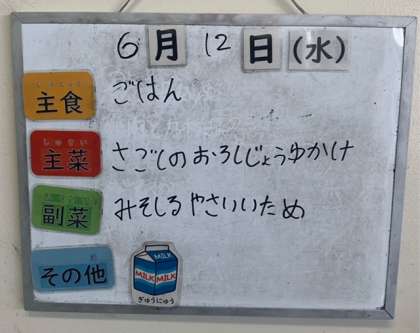 6月12日(水)
主食 ごはん
しゅさい
主菜 さごしのおろしじょうゆかけ
副菜 みそしるやさいいため
その他
MILK MILK
ぎゅうにゅう